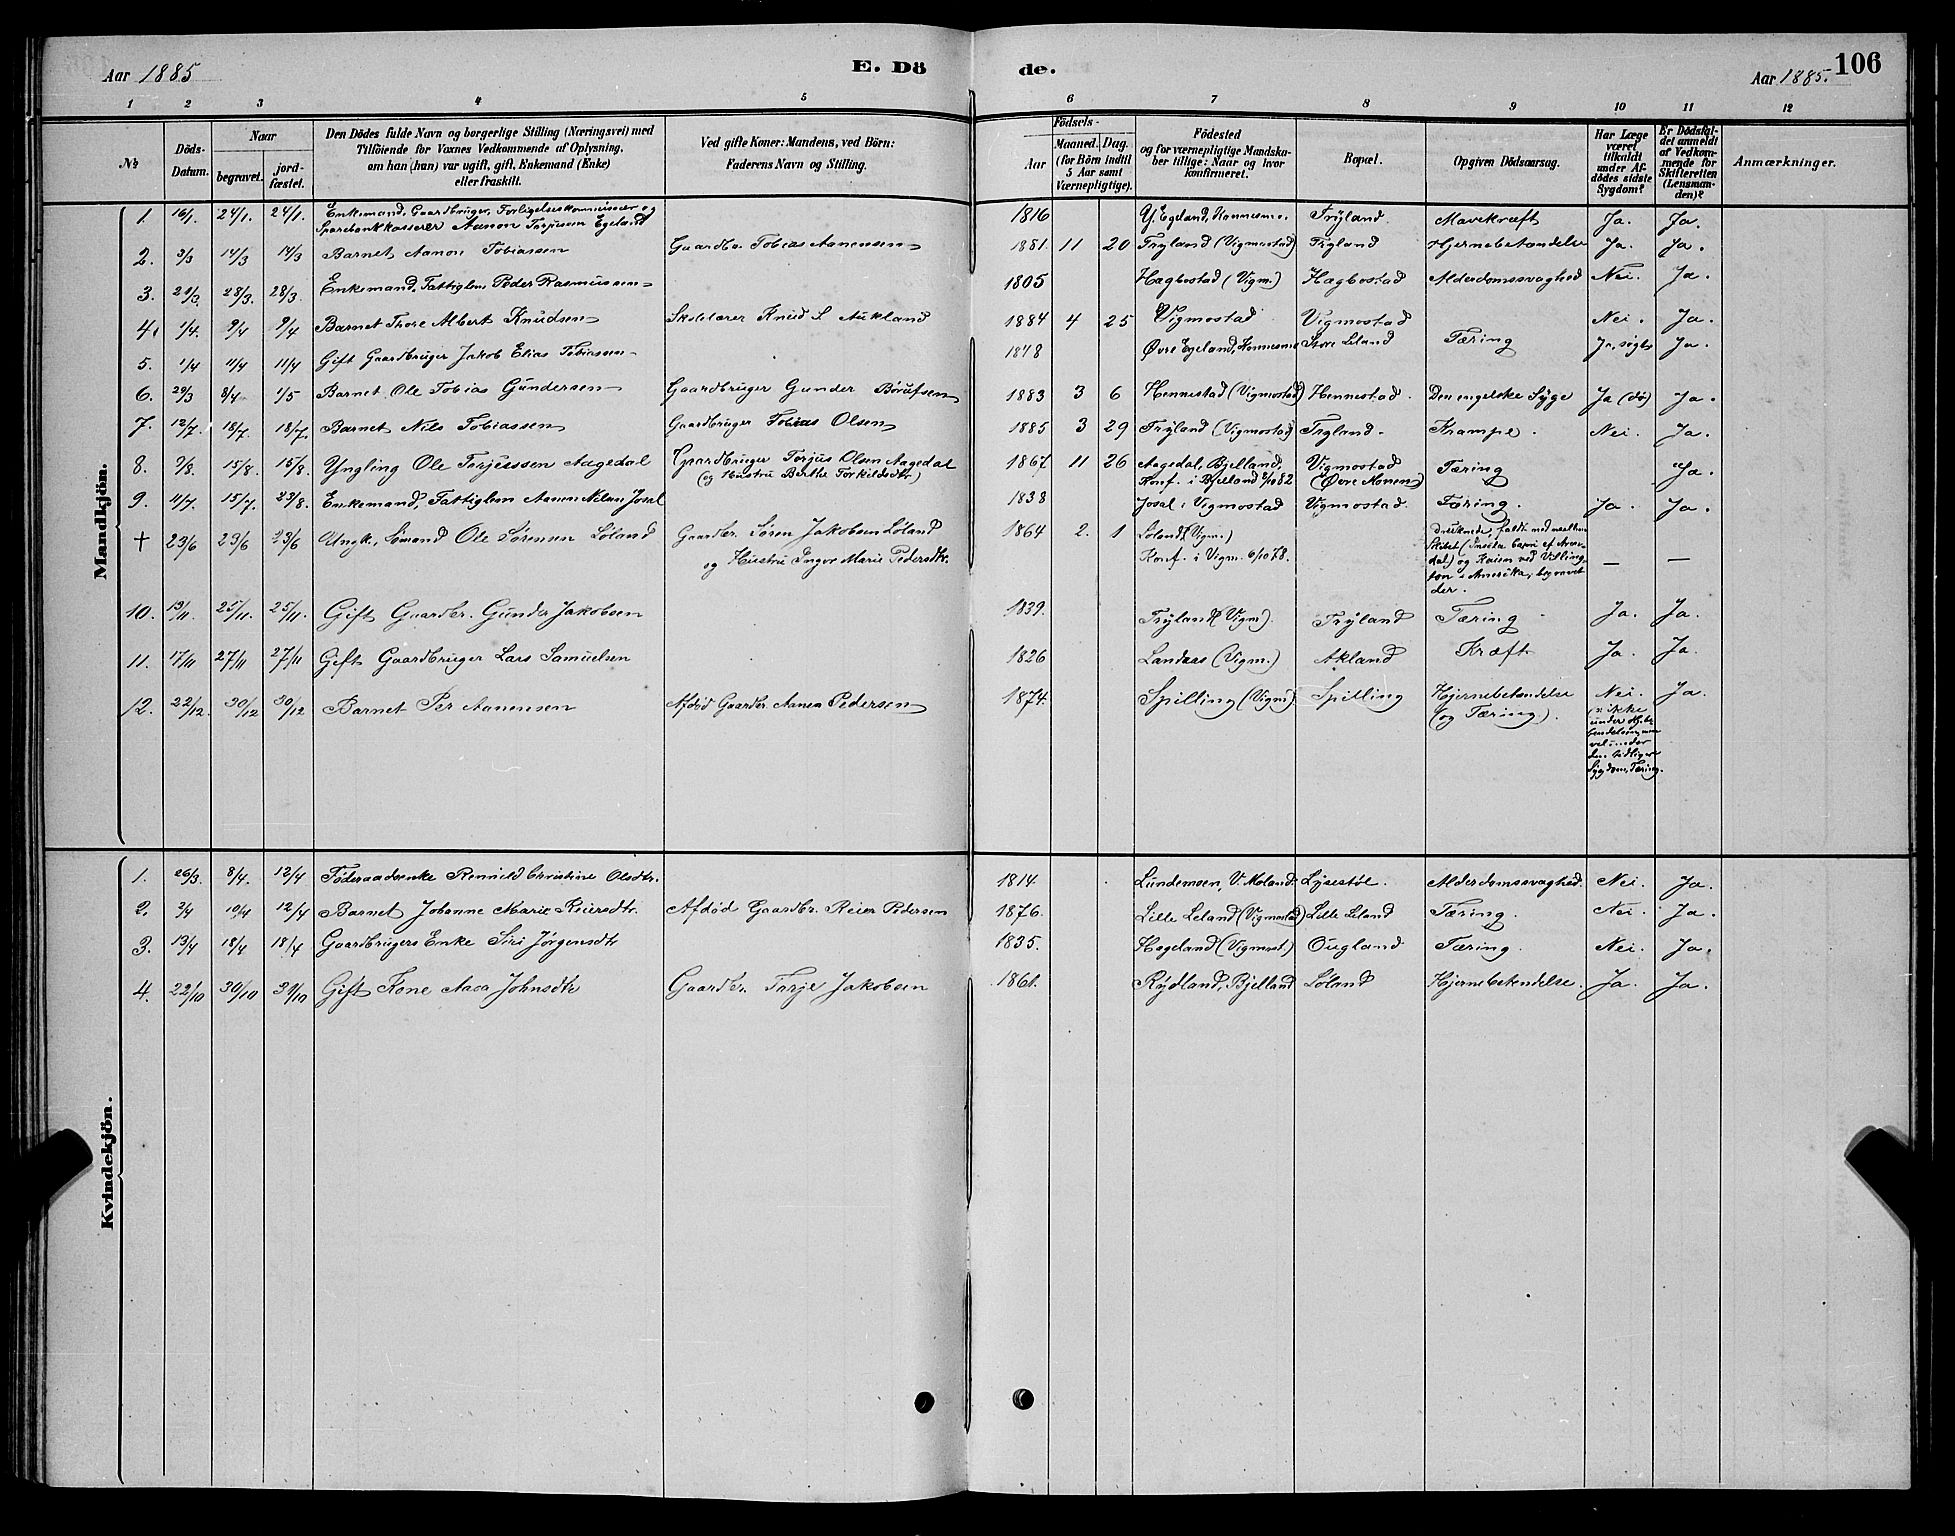 Aar 1885 E. Dö de. Aar 1885. 106
1 2 3 4 5 6 7 8 9 10 11 12
No Döds-Datum. Naar begravet. jord-fæstet. Den Dödes fulde Navn og borgerlige Stilling (Næringsvei) med Tilföiende for Voxnes Vedkommende af Oplysning, om han (hun) var ugift, gift, Enkemand (Enke) eller fraskilt. Ved gifte Koner: Mandens, ved Börn: Faderens Navn og Stilling. Födsels- Aar Maaned. Dag. (for Börn indtil 5 Aar samt Værnepligtige). Födested og for værnepligtige Mandskaber tillige: Naar og hvor konfirmeret. Bopæl. Opgiven Dödsaarsag. Har Læge været tilkaldt under Afdödes sidste Sygdom? Er Dödsfaldet anmeldt af Vedkommende for Skifteretten (Lensmanden)? Anmærkninger.
Mandkjön.
1. 16/1. 24/1. 24/1. Enkemand, Gaardbruger, Forligelseskommissær og Sparebankkasserer Aanon Torjusen Egeland 1816 Y. Egeland, Konnesmo. Tryland. Mavekræft Ja. Ja.
2. 3/3 14/3 14/3 Barnet Aanon Tobiassen Gaardbr. Tobias Aanensen 1881. 11 20 Tryland (Vigmostad) Tryland Hjernebetændelse Ja. Ja.
3. 21/3. 28/3. 28/3. Enkemand, Fattiglem Peder Rasmussen 1805 Hægbostad (Vigm.) Hægbostad Alderdomssvaghed Nei. Ja.
4. 1/4. 9/4 9/4 Barnet Thore Albert Knudsen Skolelærer Knud S. Aukland 1884 4 25 Vigmostad Vigmostad Nei. Ja.
5. 1/4 11/4 11/4 Gift Gaardbruger Jakob Elias Tobiassen 1848 Øvre Egeland, Konnesmo Store Leland Tæring Ja, Ja.
6. 29/3 8/4. 1/5 Barnet Ole Tobias Gundersen Gaardbruger Gunder Børufsen 1883 3 6 Hennestad (Vigmostad) Hennestad. Den engelske Syge Ja (dø) Ja.
7. 12/7. 18/7 18/7. Barnet Nils Tobiassen Gaardbruger Tobias Olsen 1885 3 29 Tryland (Vigmostad) Tryland. Krampe. Nei. Ja.
8. 9/8. 15/8. 15/8. Yngling Ole Torjussen Aagedal Gaardbruger Torjus Olsen Aagedal (og Hustru Berthe Torkildsdtr.) 1867. 11 26 Aagedal, Bjelland, Konf. i Bjelland 8/10 82 Vigmostad (Øvre Monen) Tæring Ja.
9. 11/7. 15/7. 23/8. Enkemand, Fattiglem Aanen Nilsen Josal 1838 Josal i Vigmostad Vigmostad. Tæring. Ja. Ja.
† 23/6 23/6 23/6 Ungk., Sømand Ole Sørensen Løland Gaardbr. Søren Jakobsen Løland og Hustru Inger Marie Pedersdtr. 1864 2. 1 Løland (Vigm.) Konf. i Vigm. 6/10 78. Druknede, faldt ned mellem Skibet af Arendal) og Kaien ved i Amerika, begravet der. — —
10. 19/11. 25/11. 25/11. Gift Gaardbr. Gunder Jakobsen 1839. Tryland (Vigm.) Tryland Tæring Ja. Ja.
11. 17/11 27/11 27/11 Gift Gaardbruger Lars Samuelsen 1826 Landaas (Vigm.) Akland Kræft Ja. Ja.
12. 22/12. 30/12 30/12 Barnet Per Aanensen Afdød Gaardbr. Aanen Pedersen 1874. Spilling (Vigm.) Spilling Hjernebetændelse (og Tæring). Nei. ikke under men vel under den tidligere Sygdom, Tæring. Ja.
Kvindekjön.
1. 26/3. 8/4. 12/4 Føderaadsenke Renhild Christine Olsdtr. 1814. Lundemoen, V. Moland. Lysestøl. Alderdomssvaghed. Nei. Ja.
2. 3/4 10/4 12/4 Barnet Johanne Marie Reiersdtr. Afdød Gaardbr. Reier Pedersen 1876. Lille Leland (Vigmostad) Lille Leland Tæring. Nei. Ja.
3. 13/4 18/4 18/4 Gaardbrugers Enke Siri Jørgensdtr 1835. Hægeland (Vigmost.) Ougland Tæring. Nei. Ja.
4. 22/10 30/10 31/10 Gift Kone Aasa Johnsdtr Gaardbr. Tarje Jakobsen 1861. Rydland, Bjelland Løland Hjernebetændelse. Ja. Ja.